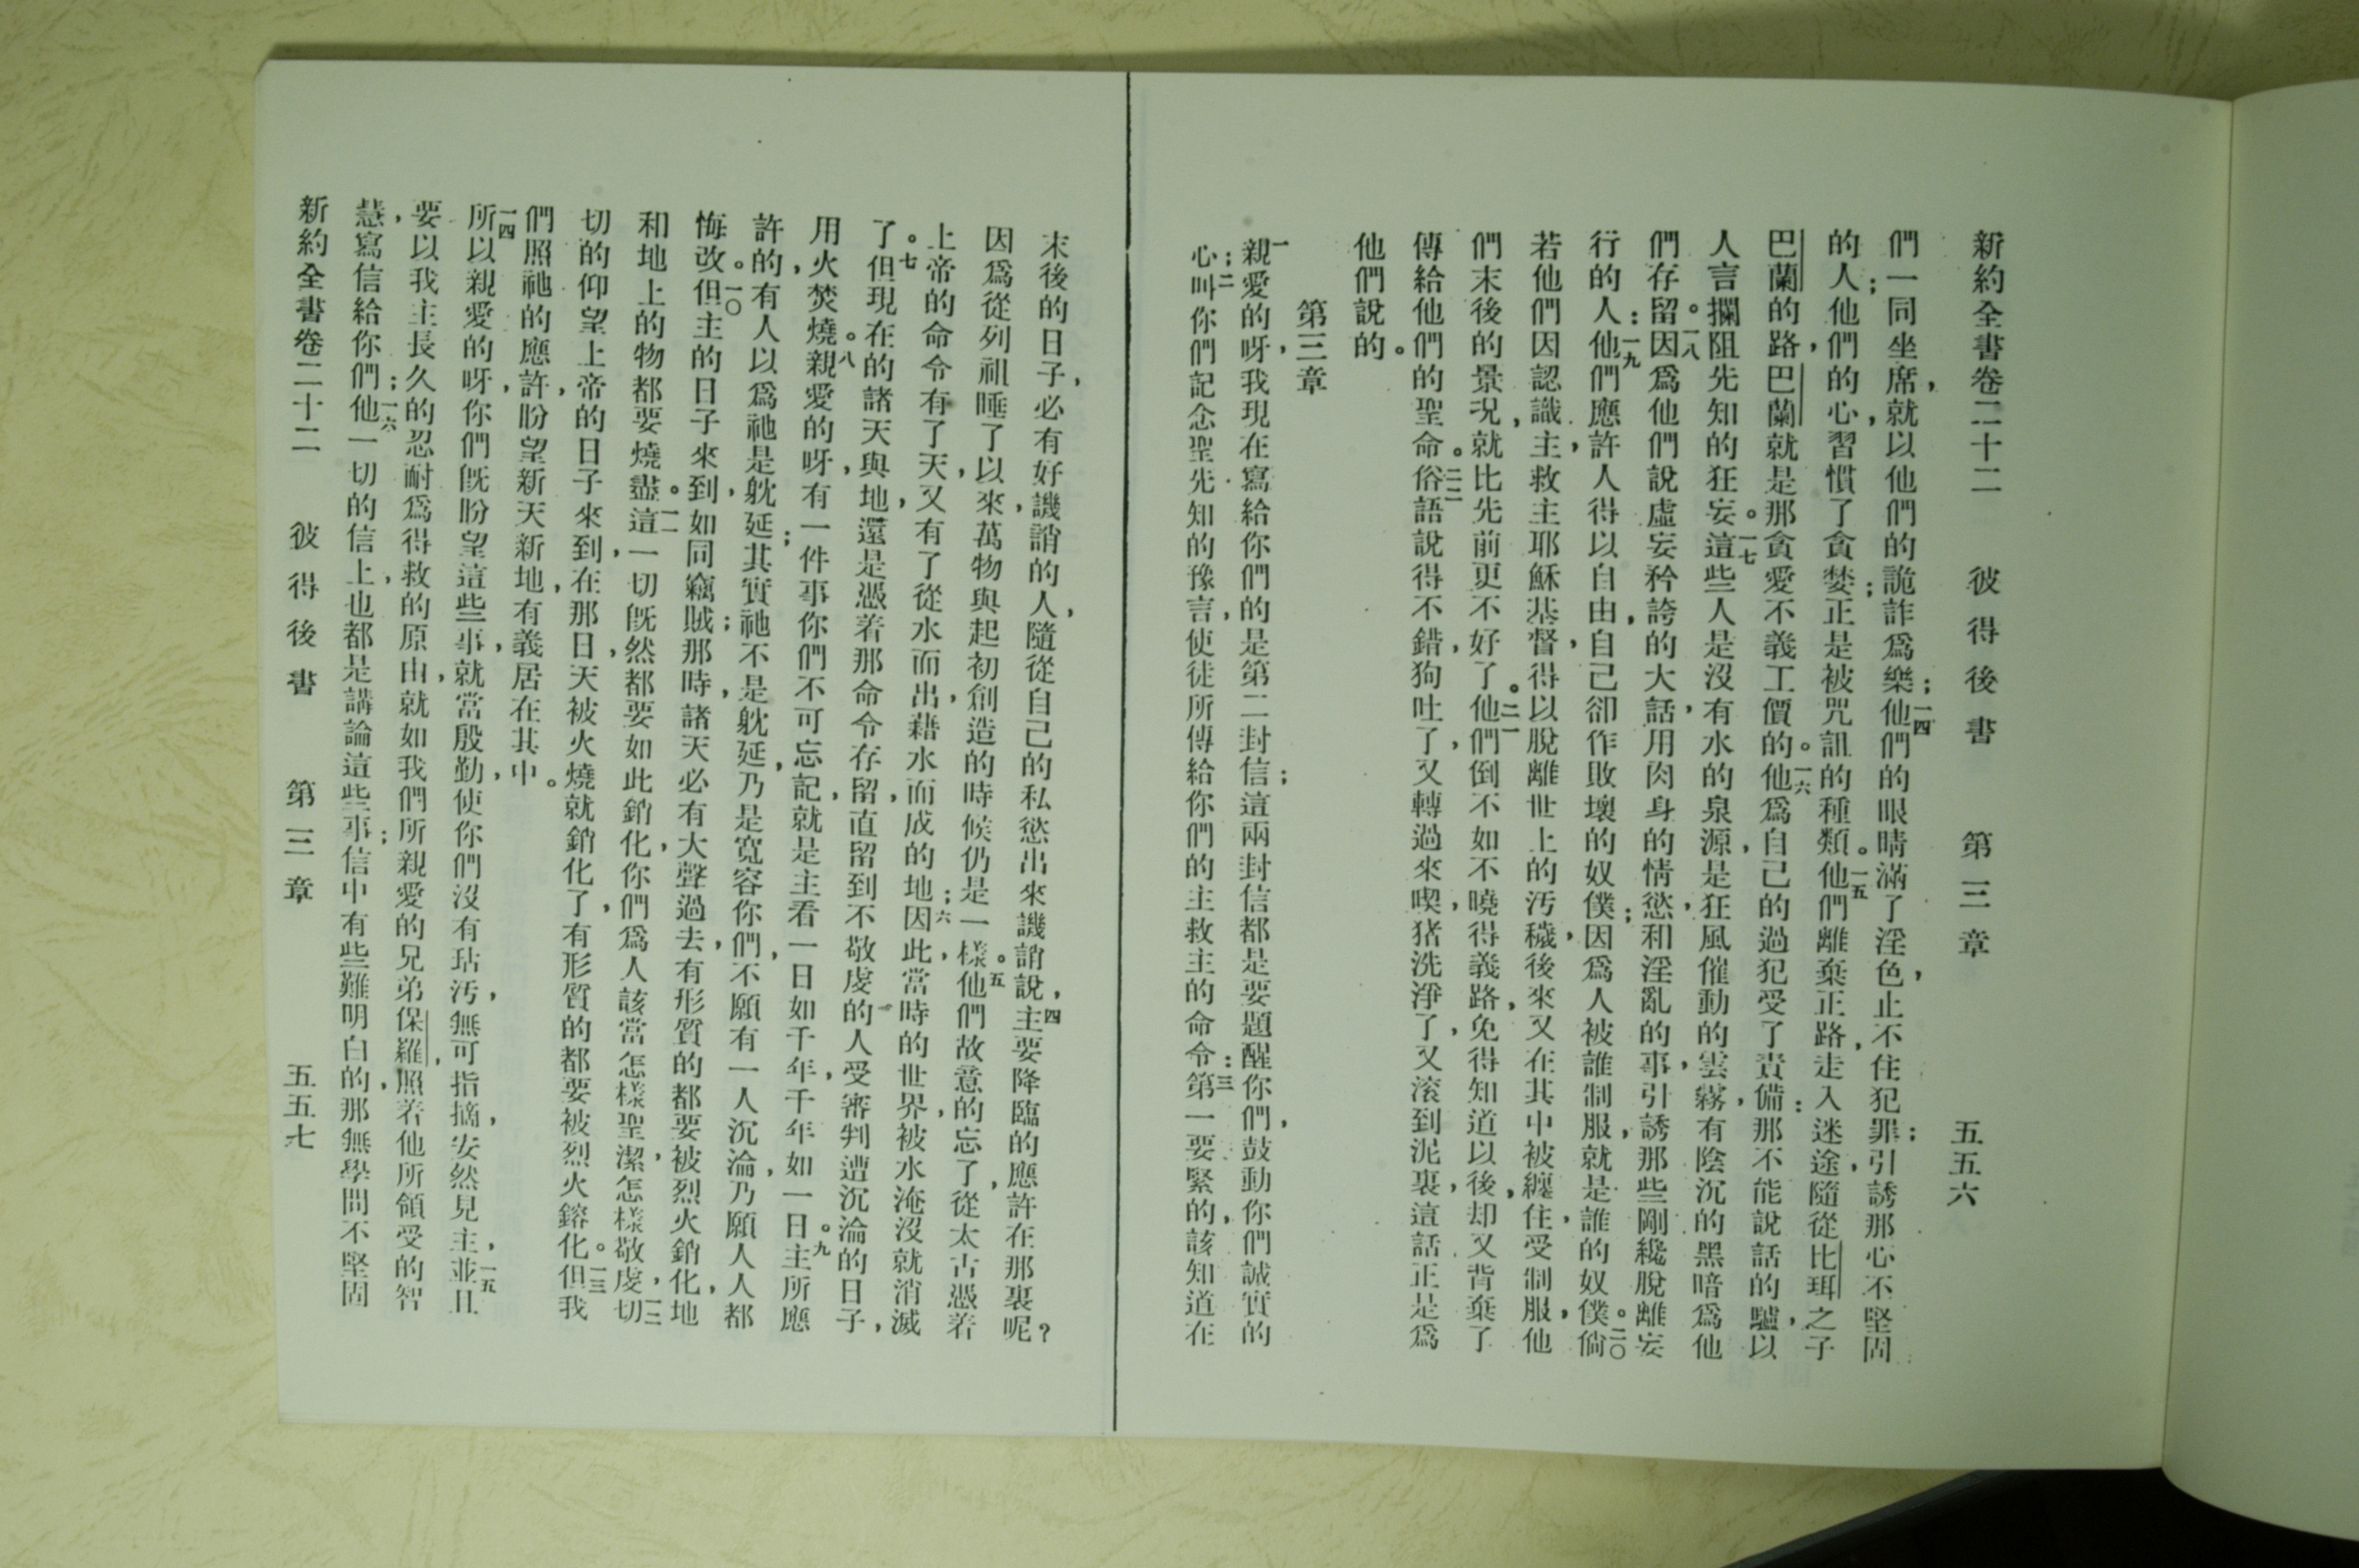 新約全書卷二十二 彼得後書 第三章 五五六
們一同坐席，就以他們的詭詐爲樂；一四他們的眼睛滿了淫色，止不住犯罪；引誘那心不堅固
的人；他們的心，習慣了貪婪；正是被咒詛的種類。一五他們離棄正路，走入迷途，隨從比珥之子
巴蘭的路，巴蘭就是那貪愛不義工價的。一六他爲自己的過犯受了責備：那不能說話的驢，以
人言攔阻先知的狂妄。一七這些人是沒有水的泉源，是狂風催動的雲霧，有陰沉的黑暗爲他
們存留。一八因爲他們說虛妄矜誇的大話，用肉身的情慾，和淫亂的事，引誘那些剛纔脫離妄
行的人：一九他們應許人得以自由，自己卻作敗壞的奴僕；因爲人被誰制服，就是誰的奴僕。二〇倘
若他們因認識主，救主耶穌基督，得以脫離世上的污穢，後來又在其中被纏住，受制服，他
們末後的景况，就比先前更不好了。二一他們倒不如不曉得義路，免得知道以後，却又背棄了
傳給他們的聖命。二二俗語說得不錯，狗吐了，又轉過來喫，猪洗淨了，又滚到泥裏，這話正是爲
他們說的。
第三章
一親愛的呀，我現在寫給你們的是第二封信；這兩封信都是要題醒你們，鼓動你們誠實的
心；二叫你們記念聖先知的豫言，使徒所傳給你們的主救主的命令：三第一要緊的，該知道在
末後的日子，必有好譏誚的人，隨從自己的私慾出來譏誚說，四主要降臨的應許在那裏呢？
因爲從列祖睡了以來，萬物與起初創造的時候仍是一樣。五他們故意的忘了，從太古憑着
上帝的命令有了天，又有了從水而出，藉水而成的地；六因此，當時的世界，被水淹沒就消滅
了。七但現在的諸天與地，還是憑着那命令存留，直留到不敬虔的人受審判遭沉淪的日子，
用火焚燒。八親愛的呀，有一件事你們不可忘記，就是主看一日如千年，千年如一日。九主所應
許的，有人以爲祂是躭延；其實祂不是躭延，乃是寬容你們，不願有一人沉淪，乃願人人都
悔改。一〇但主的日子來到，如同竊賊；那時，諸天必有大聲過去，有形質的都要被烈火銷化，地
和地上的物都要燒盡。一一這一切旣然都要如此銷化，你們爲人該當怎樣聖潔，怎樣敬虔，一二切
切的仰望上帝的日子來到，在那日，天被火燒就銷化了，有形質的都要被烈火鎔化。一三但我
們照祂的應許，盼望新天新地，有義居在其中。
一四所以親愛的呀，你們旣盼望這些事，就當殷勤，使你們沒有玷污，無可指摘，安然見主，一五並且
要以我主長久的忍耐爲得救的原由，就如我們所親愛的兄弟保羅，照着他所領受的智
慧，寫信給你們；一六他一切的信上，也都是講論這些事；信中有些難明白的，那無學問不堅固
新約全書卷二十二 彼得後書 第三章 五五七